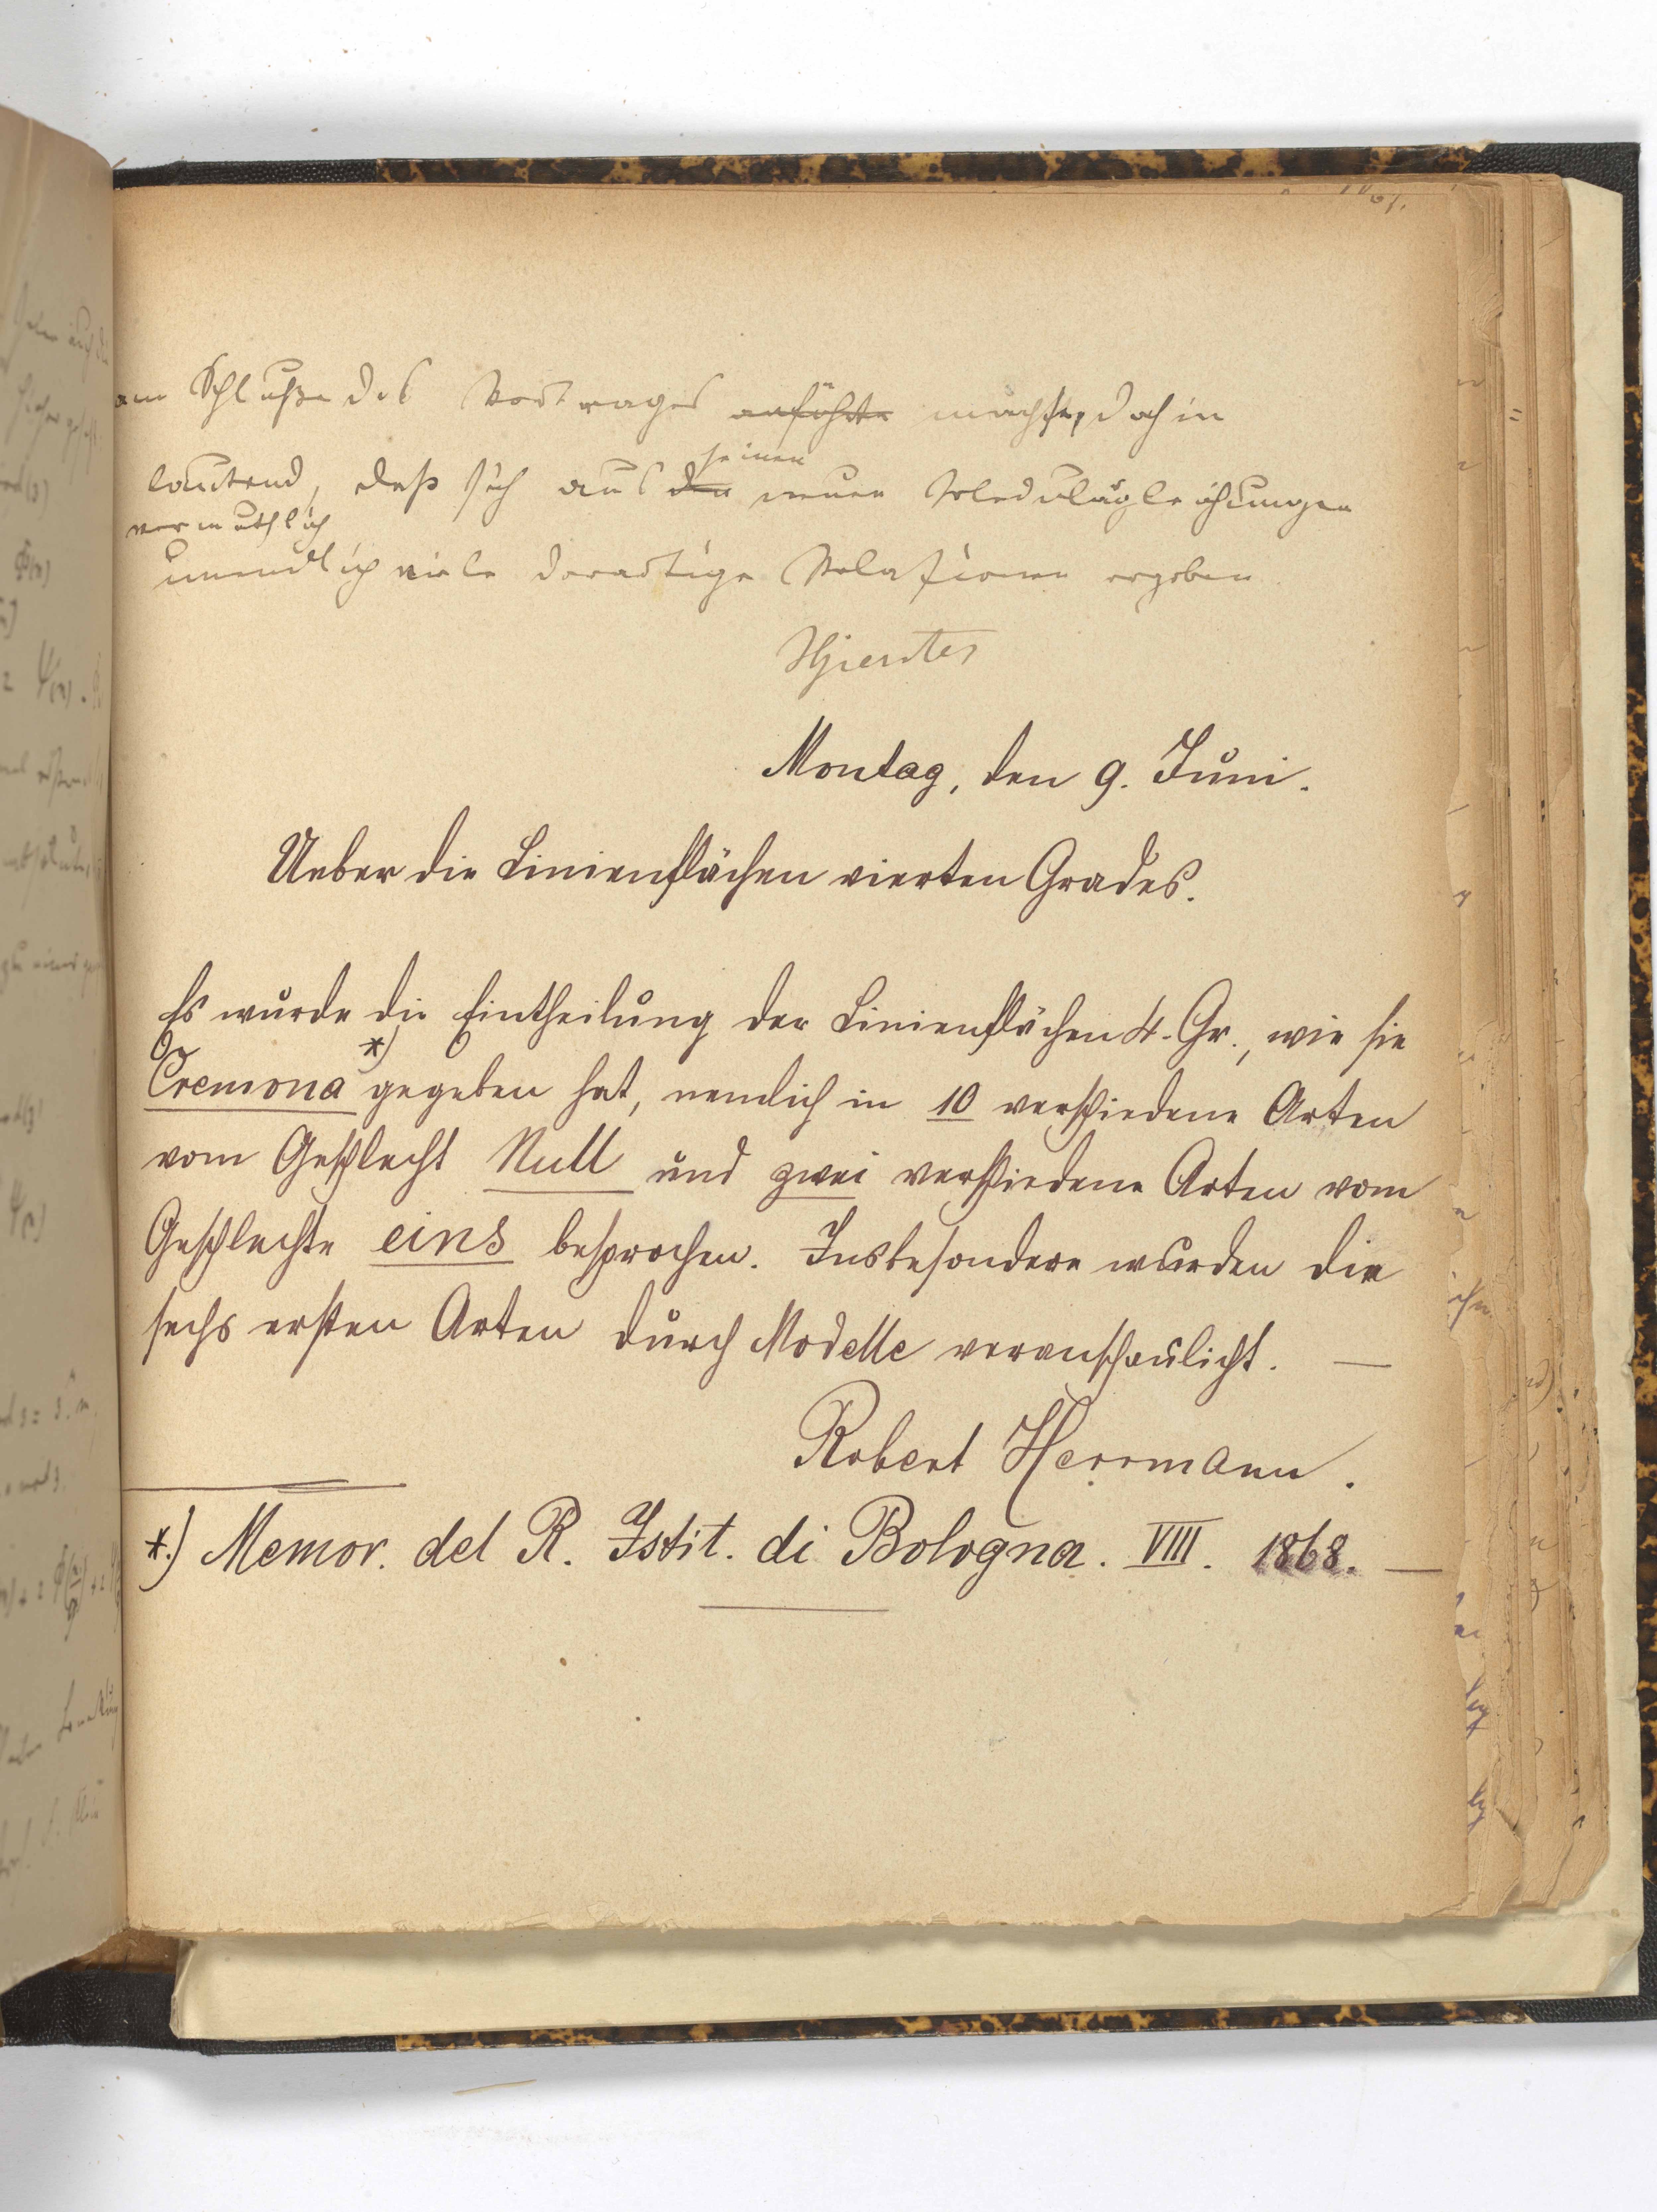 am Schluße des Vortrages anführte machte, dahin
lautend, daß sich aus den seinen neuen Modulargleichungen
vermuthlich
unendlich viele derartige Relationen ergeben
Gierster
Montag, den 9. Juni.
Ueber die Linienflächen vierten Grades.
Es wurde die Eintheilung der Linienflächen 4. Gr., wie sie
Cremona *) gegeben hat, nemlich in 10 verschiedene Arten
vom Geschlecht Null und zwei verschiedene Arten vom
Geschlechte eins besprochen. Insbesondere wurden die
sechs ersten Arten durch Modelle veranschaulicht. —
Robert Herrmann.
*.) Memor. del R. Istit. di Bologna. VIII. 1868. —